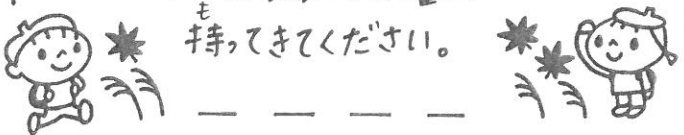 持ってきてください。